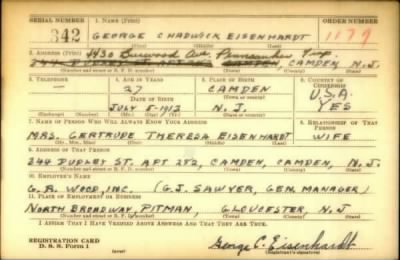 SERIAL NUMBER 1. NAME (Print) ORDER NUMBER
342 GEORGE CHADWICK EISENHARDT 1179
(First) (Middle) (Last)
2. ADDRESS (Print) 1430 Ave Pennsauken Twp.
244 DUDLEY ST. APT 252 CAMDEN, CAMDEN, N.J.
(Number and street or R. F. D. number) (Town) (County) (State)
3. TELEPHONE 4. AGE IN YEARS 5. PLACE OF BIRTH 6. COUNTRY OF CITIZENSHIP
27 CAMDEN U.S.A.
DATE OF BIRTH (Town or county)
JULY 5-1913 N.J. YES
(Exchange) (Number) (Mo.) (Day) (Yr.) (State or country)
7. NAME OF PERSON WHO WILL ALWAYS KNOW YOUR ADDRESS 8. RELATIONSHIP OF THAT PERSON
MRS. GERTRUDE THERESA EISENHARDT WIFE
(Mr., Mrs., Miss) (First) (Middle) (Last)
9. ADDRESS OF THAT PERSON
244 DUDLEY ST. APT 252, CAMDEN, CAMDEN, N.J.
(Number and street or R. F. D. number) (Town) (County) (State)
10. EMPLOYER'S NAME
G. R. WOOD, INC. (G.J. SAWYER, GEN. MANAGER)
11. PLACE OF EMPLOYMENT OR BUSINESS
NORTH BROADWAY, PITMAN, GLOUCESTER, N.J
(Number and street or R. F. D. number) (Town) (County) (State)
I AFFIRM THAT I HAVE VERIFIED ABOVE ANSWERS AND THAT THEY ARE TRUE.
REGISTRATION CARD
D. S. S. Form 1 (over) George C. Eisenhardt
(Registrant's signature)